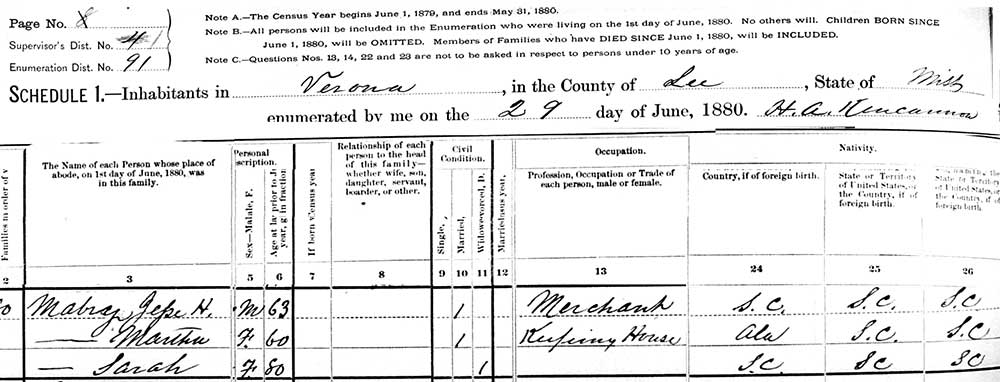 Page No. 8
Supervisor's Dist. No. 41
Enumeration Dist. No. 91
Note A.—The Census Year begins June 1, 1879, and ends May 31, 1880.
Note B.—All persons will be included in the Enumeration who were living on the 1st day of June, 1880. No others will. Children BORN SINCE
June 1, 1880, will be OMITTED. Members of Families who have DIED SINCE June 1, 1880, will be INCLUDED.
Note C.—Questions Nos. 13, 14, 22 and 23 are not to be asked in respect to persons under 10 years of age.
SCHEDULE 1.—Inhabitants in Verona, in the County of Lee, State of Miss
enumerated by me on the 29 day of June, 1880. H. A. Kincannon
Families in order of v
The Name of each Person whose place of
abode, on 1st day of June, 1880, was
in this family.
Personal
scription.
Sex—Male, F.
Age at la prior to J
year, g in fraction
If born Census year
Relationship of each
person to the head
of this family—
whether wife, son,
daughter, servant,
boarder, or other.
Civil
Condition.
Single,
Married,
Widowe vorced, D.
Married us year,
Occupation.
Profession, Occupation or Trade of
each person, male or female.
Nativity.
Country, if of foreign birth.
State or Territory
of United States, or
the Country, if of
foreign birth.
State or Territory
of United States, or
the Country, if of
foreign birth.
2 3 5 6 7 8 9 10 11 12 13 24 25 26
0 Mabray Jesse H. M 63 1 Merchant S.C. S.C. S.C
— Martha F. 60 1 Keeping House Ala S.C. S.C
— Sarah F 80 1 S.C. SC SC